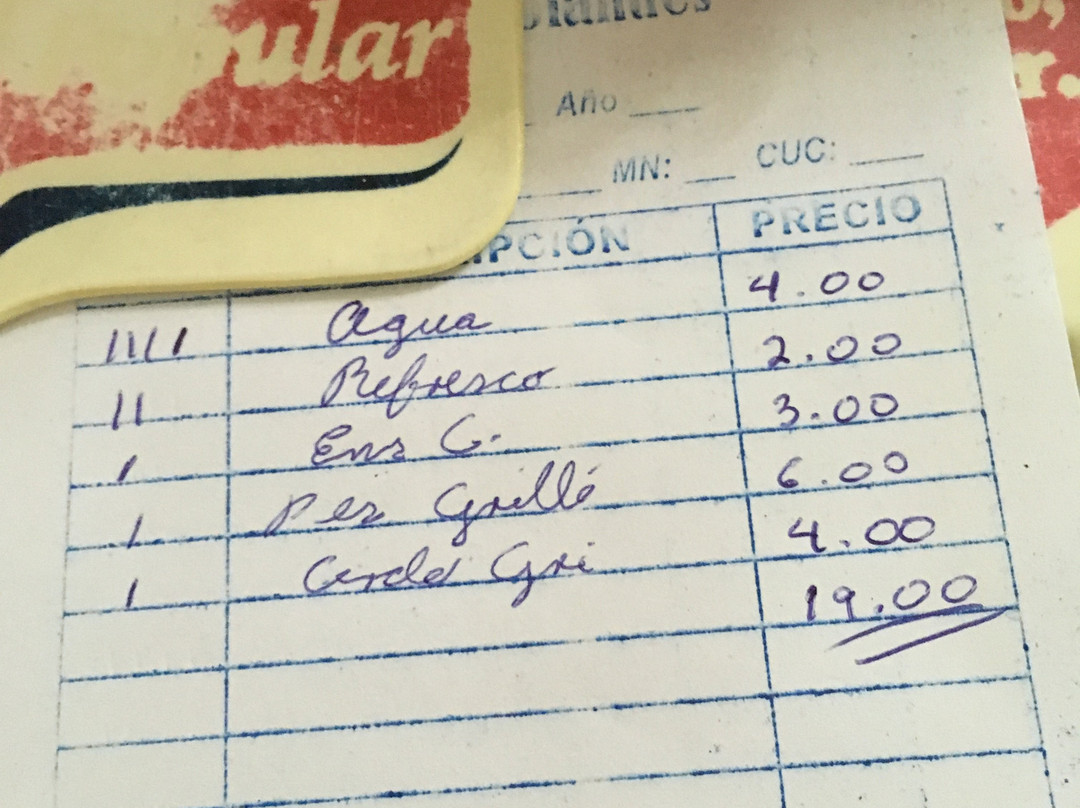 ular
Año ____
MN: ___ CUC: ____
PCIÓN PRECIO
IIII Agua 4.00
II Refresco 2.00
I Ens C. 3.00
I Pez Grillé 6.00
I Cerdo Gri 4.00
19.00